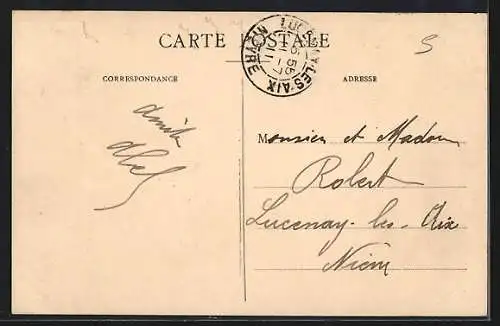 CARTE POSTALE
LUCENAY-LES-AIX
NIÈVRE
CORRESPONDANCE
ADRESSE
5
Monsieur et Madame
Robert
Lucenay-les-Aix
Nièvre